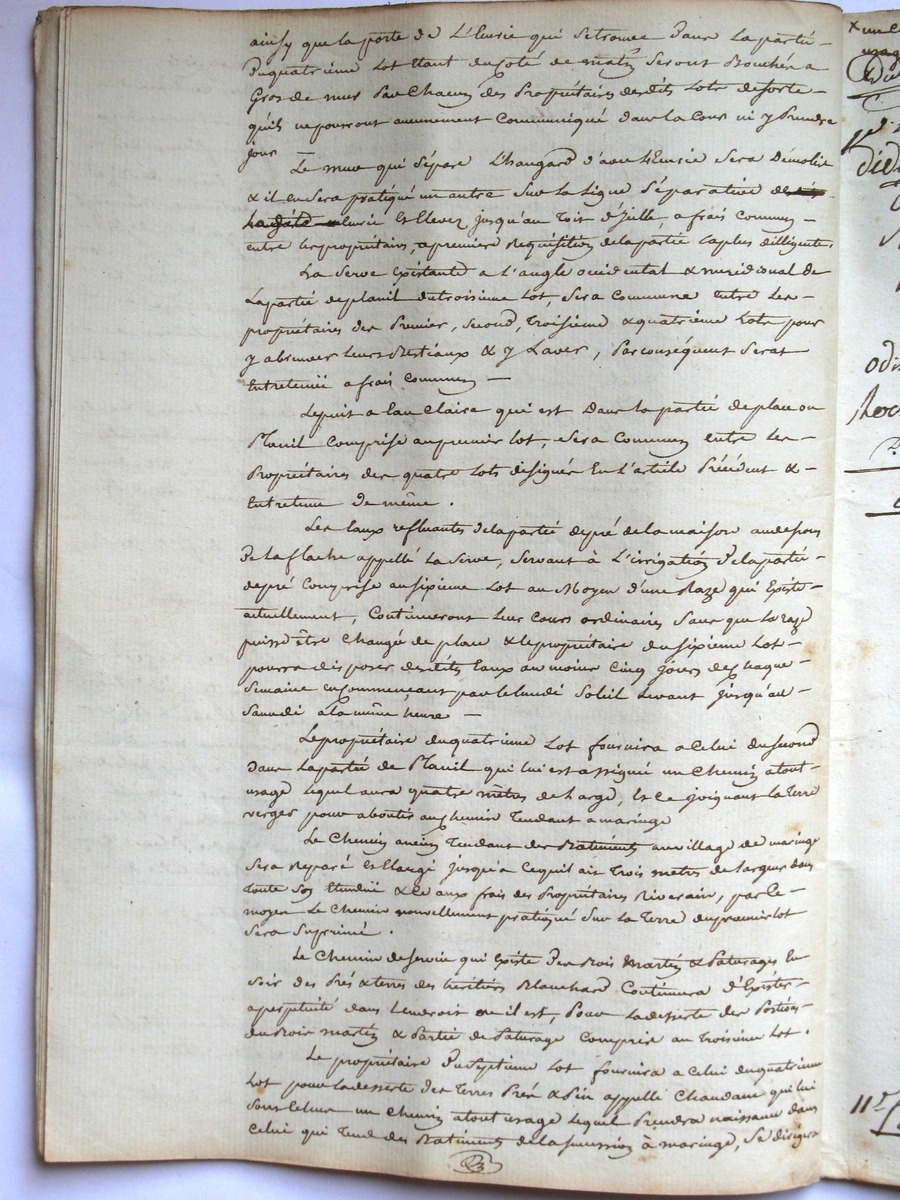 ainsy que la porte de L'Eurie qui se trouve Dans La partie
Du quatrieme Lot Etant du Coté de matin Seront Bouchée a
Gros de mur Par Chacun des Propriétaires desdits Lots de sorte
quils ne pourront aucunement Communiqué dans la Cour ni y Prendre
jour
Le mur qui Sépare L'hangard d'avec L'Eurie Sera Démolie
& il en Sera pratiqué un autre Sur la Ligne Séparative de
Eurie Et Elevez jusqu'au Toit d'Icelle, a frais Commun
entre les propriétaires, a premiere Requisition de la partie La plus dilligente.
La Serve Existante a l'angle occidental & meridional de
La partie de plauil du troisieme Lot, Sera Commune entre Les
propriétaires des Premier, Second, Troisieme & quatrieme Lots pour
y abreuver Leurs Bestiaux & y Laver, Par conséquent Serat
Entretenüe a frais Commun
Le puit a Eau Claire qui est Dans la partie de place ou
Plauil Comprise au premier Lot, Sera Commun entre Les
Propriétaires des quatre Lots désignés En L'article Précédent &
Entretenue De même.
Les Eaux refluantes de la partie de pré de la maison au dessous
De La flache appellé La Serve, Servant à L'irrigation De la partie
de pré Comprise au sixieme Lot au Moyen d'une Raze qui Existe
actuellement, Continueront Leur Cours ordinaires Sans que la raze
puisse être Changée de place & le propriétaire du sixieme Lot
pourra disposer desdits Eaux au moins Cinq jours de chaque
Semaine en Commencant par le Lundi Soleil Levant jusqu'au
Samedi à la même heure
Le propriétaire du quatrieme Lot fournira a Celui du Second
Dans La partie de Plauil qui lui est assigné un Chemin a tout
usage Lequel aura quatre mètres de Large, Et Ce joignant La Terre
verger pour aboutir au Chemin Tendant a maringe
Le Chemin ancien Tendant des Batiments au village de maringe
Sera Reparé Et Elargi jusqu'a Ce quil ait Trois metres de Largeur dans
Toute Son Etendüe & Ce aux frais des Propriétaires Riverain, par Ce
moyen Le Chemin nouvellement pratiqué Sur La Terre du premier Lot
Sera Suprimé.
Le Chemin de Servie qui Existe Des Bois Martin & Paturages En
Soir des Prés & terres des héritiers Blanchard Continuera d'Exister
a perpétuité dans Lendroit ou il est, Pour La desserte des Portions
du Bois martin & Partie de Paturage Comprise au Troisieme Lot.
Le propriétaire Du Septieme Lot fournira a Celui du quatrieme
Lot pour La desserte des Terres Prés & Pin appellé Chaudane qui lui
Sont Echus un Chemin a tout usage Lequel Prendra naissance dans
Celui qui Tend des Batiments de la Succession à maringe, Se dirigera